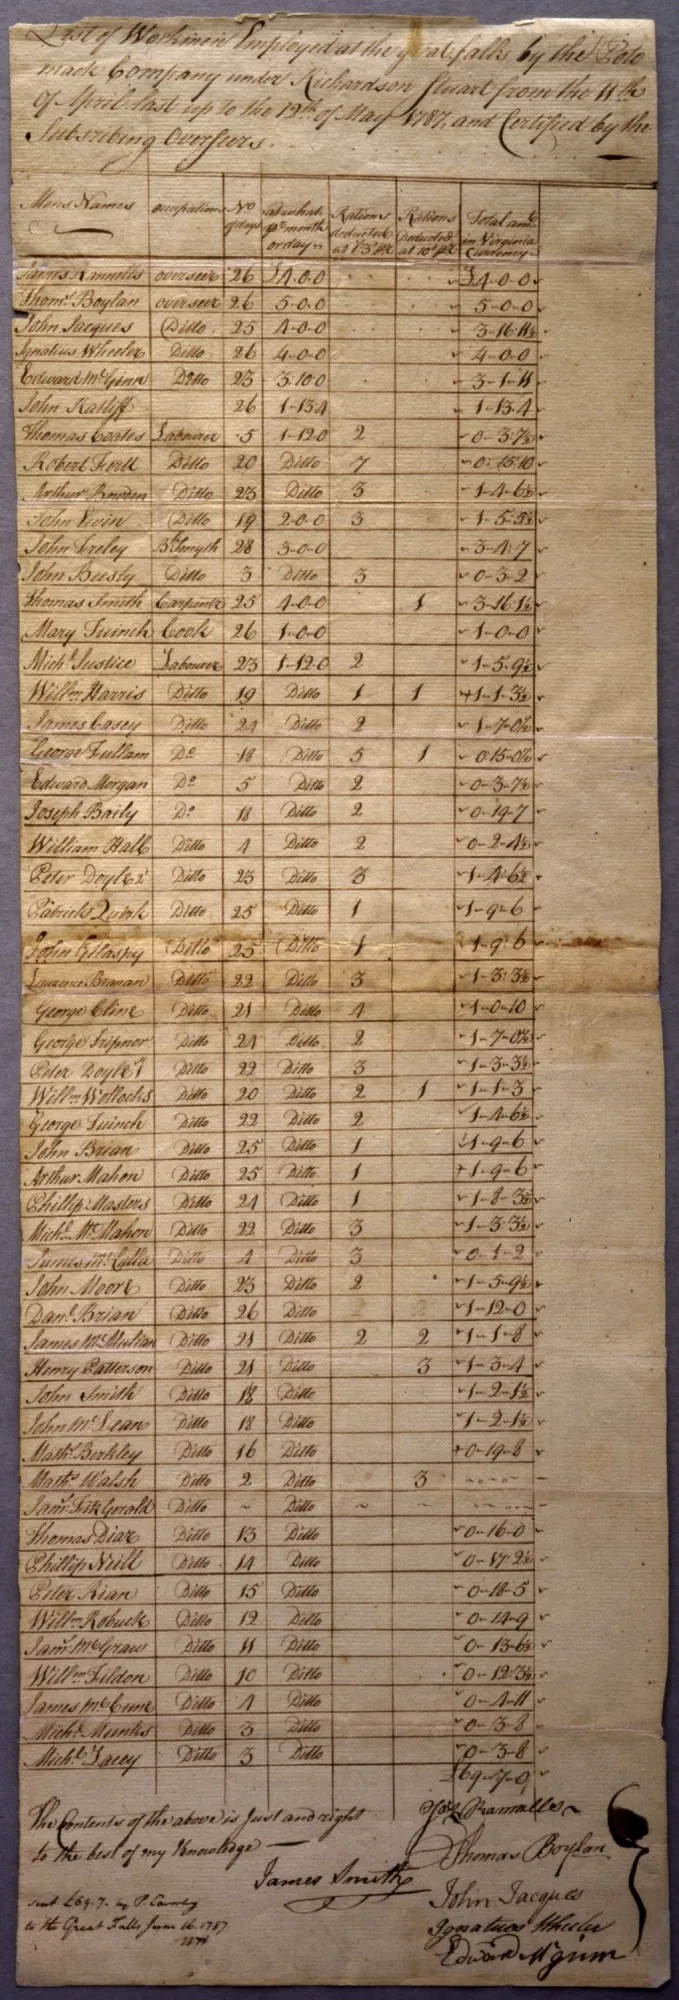 List of Workmen Employed at the great falls by the Poto
mack Company under Richardson Stuart from the 11th
of April last up to the 12th of May 1787, and Certified by the
Subscribing Overseers.
Mens Names occupations No of days at what pr month or day Rations deducted at 1/3 pr Rations Deducted at 10d pr Total amt in Virginia Currency
James Rannells overseer 26 £4-0-0 £4-0-0
Thoms Boylan overseer 26 5-0-0 5-0-0
John Jacques Ditto 25 4-0-0 3-16-11½
Ignatius Wheeler Ditto 26 4-0-0 4-0-0
Edward McGinn Ditto 23 3-10-0 3-1-11
John Ratliff 26 1-13-4 1-13-4
Thomas Coates Labourer 5 1-12-0 2 0-3-7½
Robert Ditto 20 Ditto 7 0-15-10
Arthur Bowden Ditto 23 Ditto 3 1-4-6½
John Ditto 19 2-0-0 3 1-5-5½
John Bk Smyth 28 3-0-0 3-4-7
John Busly Ditto 3 Ditto 3 0-3-2
Thomas Smith Carpentr 25 4-0-0 1 3-16-1½
Mary Cook 26 1-0-0 1-0-0
Michl Justice Labourer 23 1-12-0 2 1-5-9½
Willm Harris Ditto 19 Ditto 1 1 1-1-3½
James Casey Ditto 24 Ditto 2 1-7-0½
George Fullam Do 18 Ditto 5 1 0-15-0½
Edward Morgan Do 5 Ditto 2 0-3-7½
Joseph Baily Do 18 Ditto 2 0-19-7
William Hall Ditto 4 Ditto 2 0-2-4½
Peter Doyle 2d Ditto 23 Ditto 3 1-4-6½
Patrick Quirk Ditto 25 Ditto 1 1-9-6
John Gllaspy Ditto 25 Ditto 1 1-9-6
Laurence Branan Ditto 22 Ditto 3 1-3-3½
George Cline Ditto 21 Ditto 4 1-0-10
George Ditto 24 Ditto 2 1-7-0½
Peter Doyle Ditto 22 Ditto 3 1-3-3½
Willm Wollocks Ditto 20 Ditto 2 1 1-1-3
George Ditto 22 Ditto 2 1-4-6½
John Brian Ditto 25 Ditto 1 1-9-6
Arthur Mahon Ditto 25 Ditto 1 1-9-6
Phillip Masters Ditto 24 Ditto 1 1-8-3½
Michl McMahon Ditto 22 Ditto 3 1-3-3½
James Ditto 4 Ditto 3 0-1-2
John Moore Ditto 23 Ditto 2 1-5-9½
Danl Brian Ditto 26 Ditto 1-12-0
James McMulian Ditto 21 Ditto 2 2 1-1-8
Henry Patterson Ditto 21 Ditto 3 1-3-4
John Smith Ditto 18 Ditto 1-2-1½
John McLean Ditto 18 Ditto 1-2-1½
Mathw Berkley Ditto 16 Ditto 0-19-8
Mathw Walsh Ditto 2 Ditto 3
Jams FitzGerald Ditto ~ Ditto ~ ~
Thomas Diar Ditto 13 Ditto 0-16-0
Phillip Neill Ditto 14 Ditto 0-17-2½
Peter Rian Ditto 15 Ditto 0-18-5
Willm Robuck Ditto 12 Ditto 0-14-9
Jams McGraw Ditto 11 Ditto 0-13-6½
Willm Fildon Ditto 10 Ditto 0-12-3½
James McCune Ditto 4 Ditto 0-4-11
Michl Munks Ditto 3 Ditto 0-3-8
Michl Lacey Ditto 3 Ditto 0-3-8
£69-7-0
The Contents of the above is Just and right
to the best of my Knowledge
James Smith
Jas Rannalls
Thomas Boylan
John Jacques
Ignatious Wheeler
Edward McGinn
sent £69.7. by P.
to the Great Falls June 16. 1787